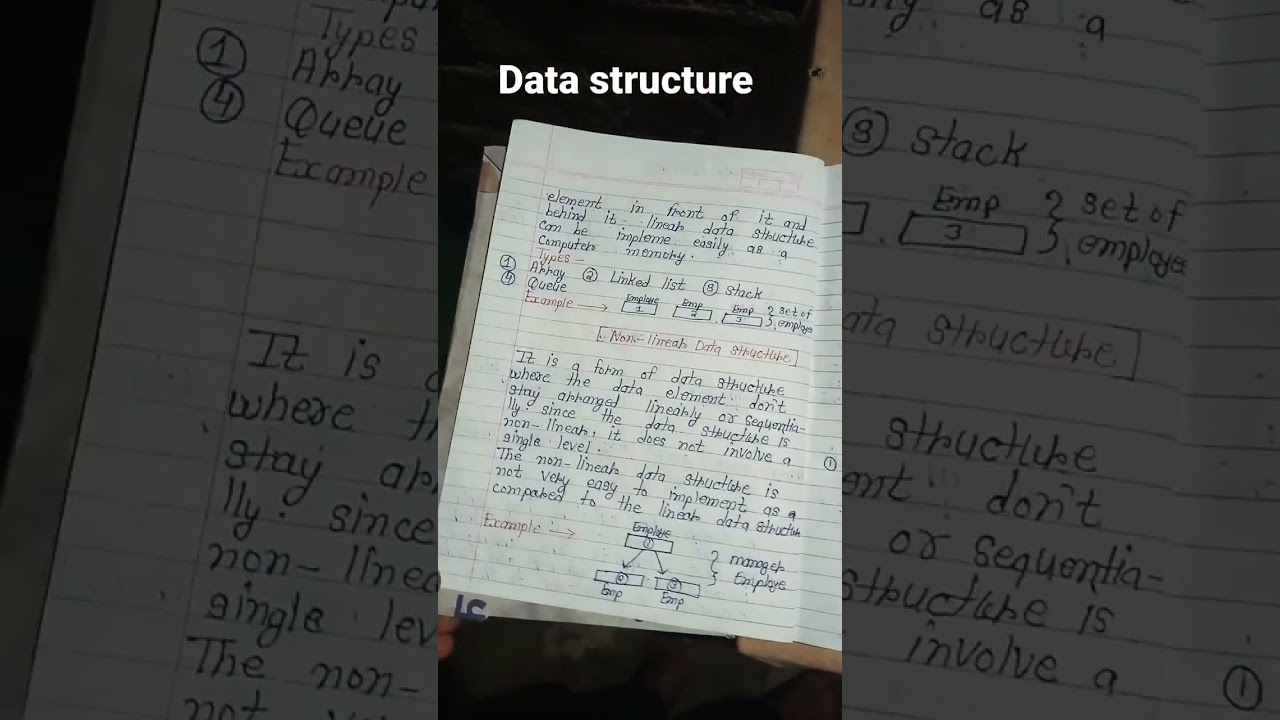 Data structure
element in front of it and
behind it. linear data structure
can be impleme easily as a
computer memory.
Types -
① Array ② Linked list ③ Stack
④ Queue
Example → Employe 1 Emp 2 Emp 3 } set of
} employe
Non-linear Data structure
It is a form of data structure
where the data element don't
stay arranged linearly or sequentia-
lly. since the data structure is
non-linear, it does not involve a
single level.
The non-linear data structure is
not very easy to implement as a
compared to the linear data structur
Example → Employe
①
② ③ } manager
Emp Emp } Employe
①